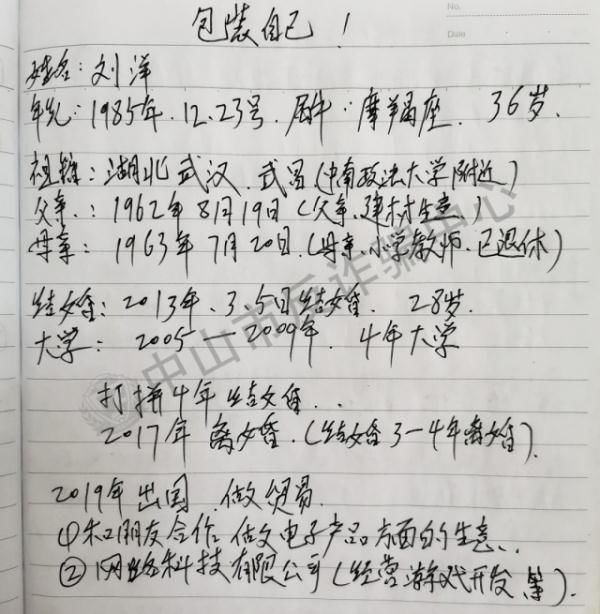 No.
Date
包装自己！
姓名:刘洋
年纪:1985年.12.23号.属牛.摩羯座. 36岁.
祖籍:湖北武汉.武昌(中南政法大学附近)
父亲.:1962年8月19日(父亲.建材生意)
母亲:1963年7月20日.(母亲.小学教师.已退休)
结婚:2013年.3.5日结婚. 28岁.
大学: 2005—2009年. 4年大学
打拼4年结婚..
2017年离婚.(结婚3-4年离婚).
2019年出国.做贸易.
①和朋友合作做电子产品方面的生意..
②网络科技有限公司(经营游戏开发等).
中山市反诈骗中心